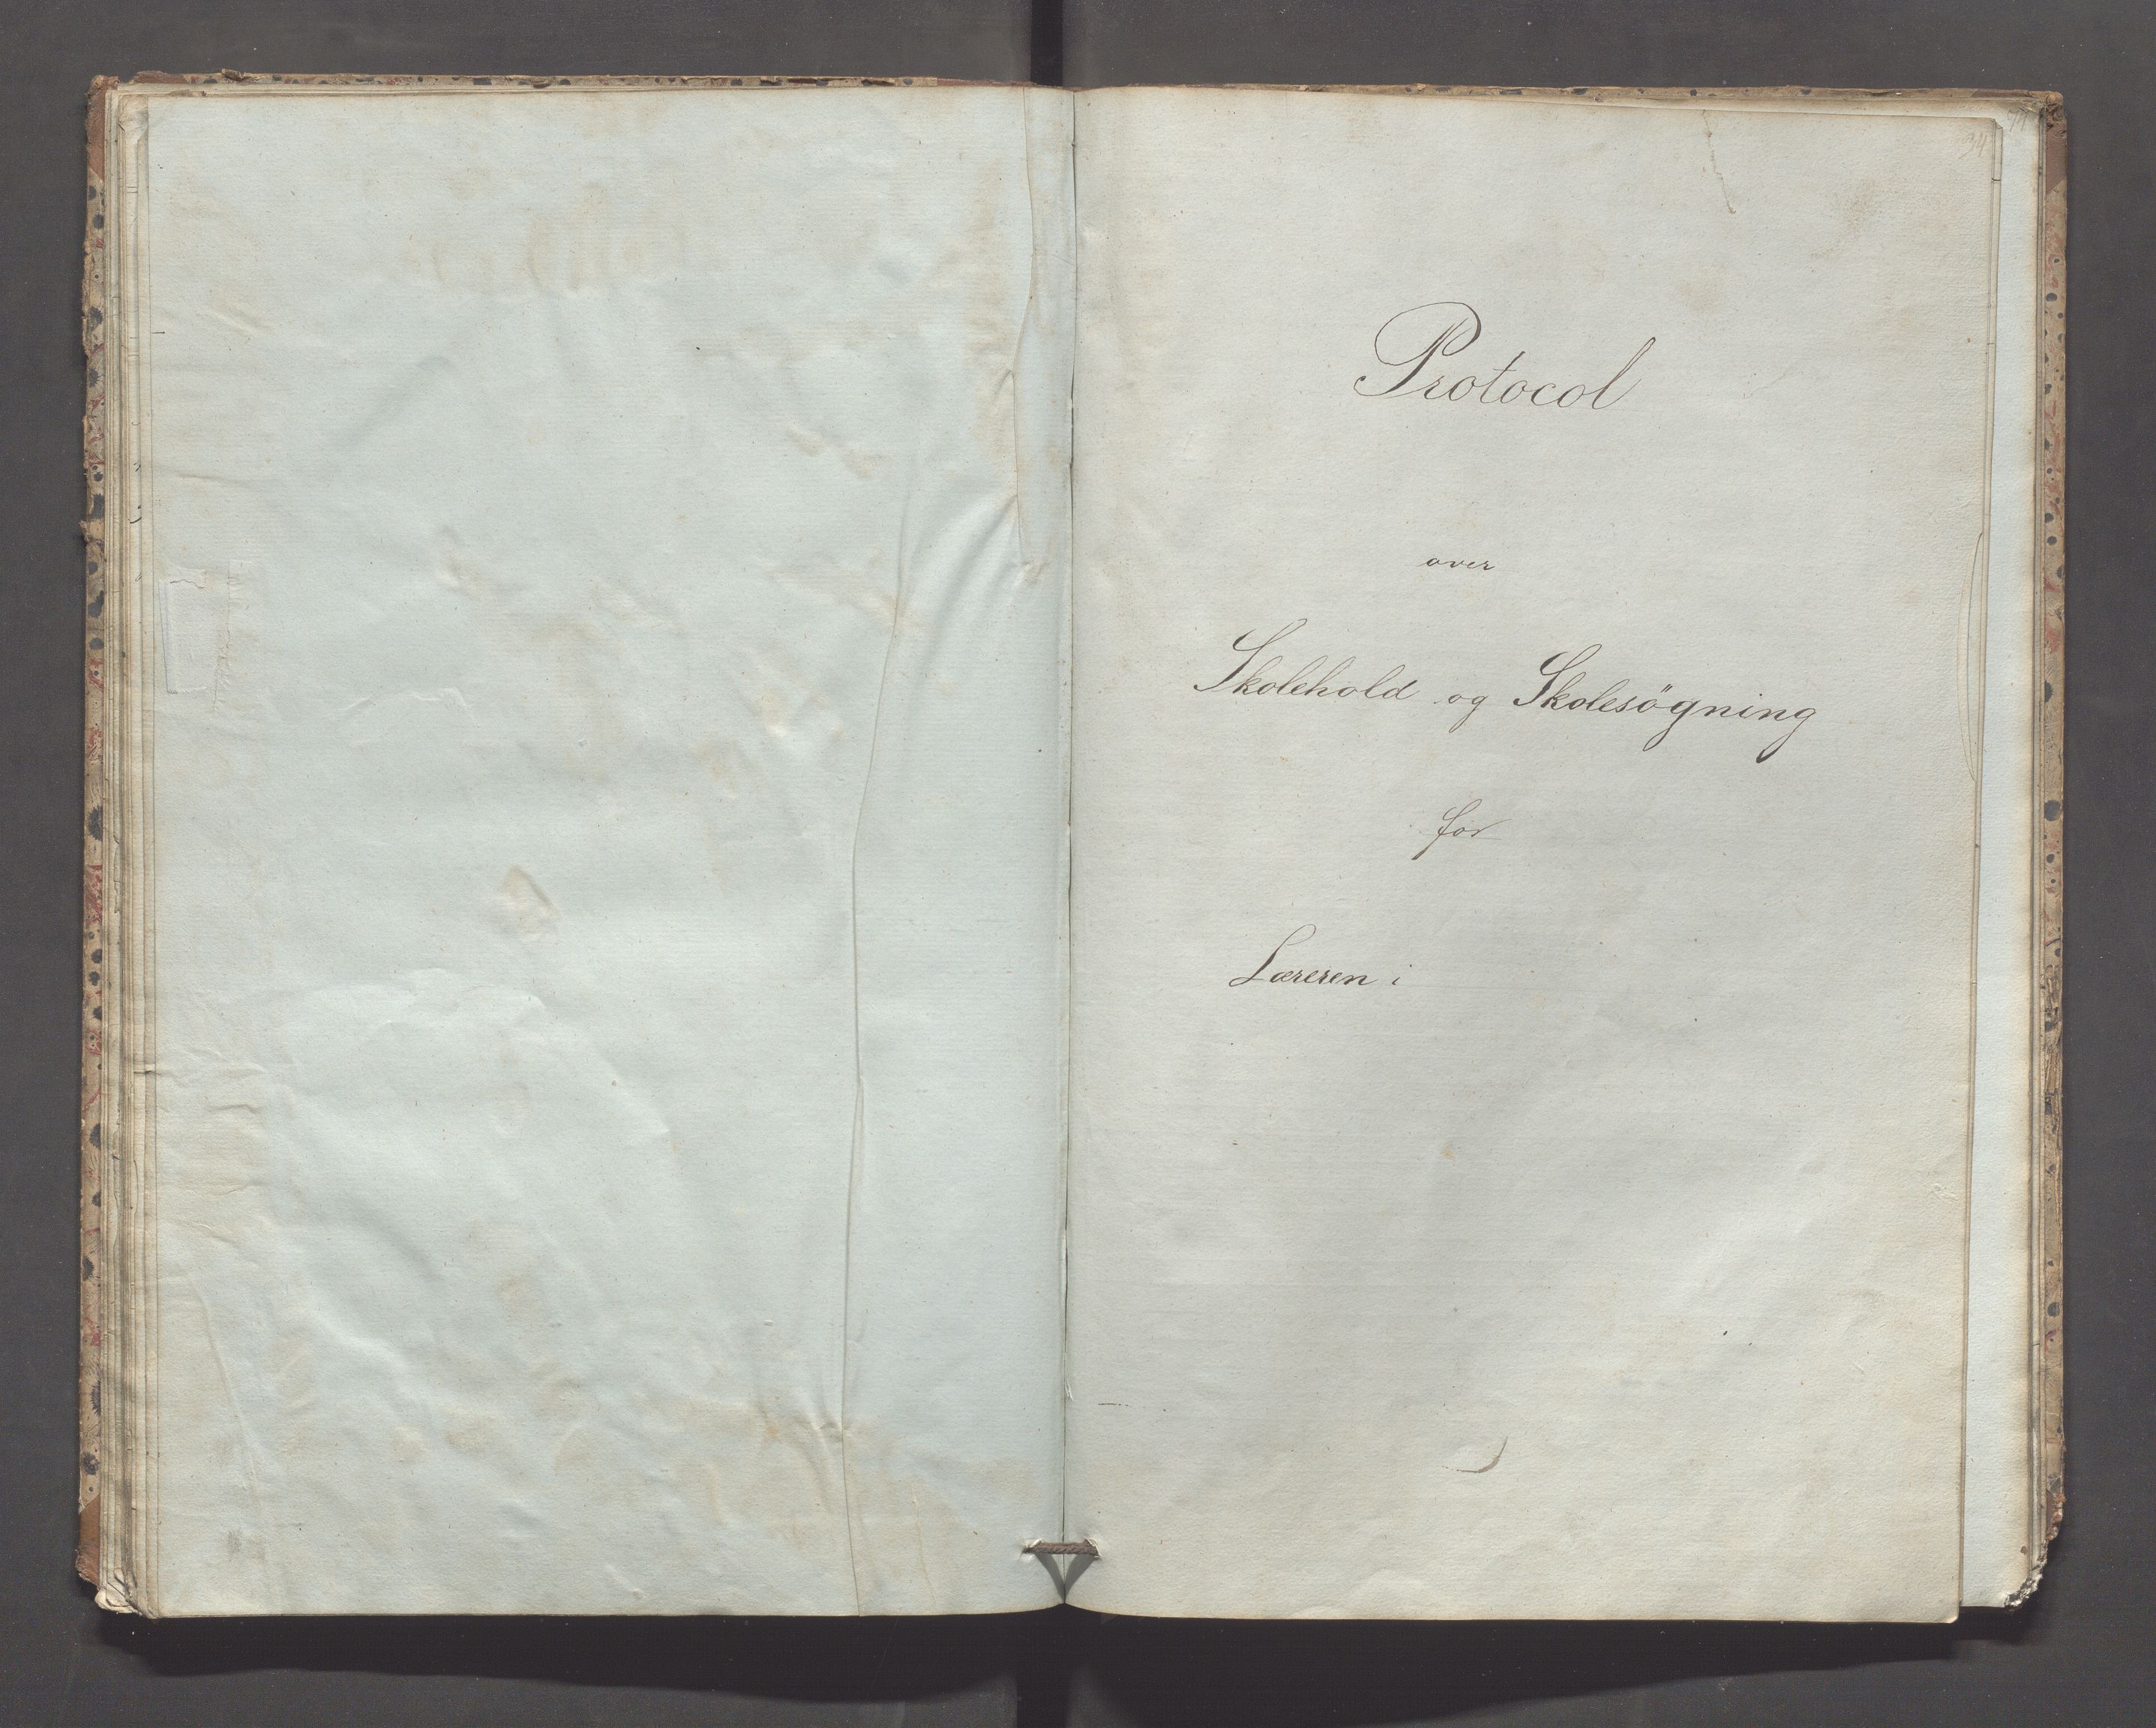 Protocol
over
Skolehold og Skolesögning
for
Læreren i